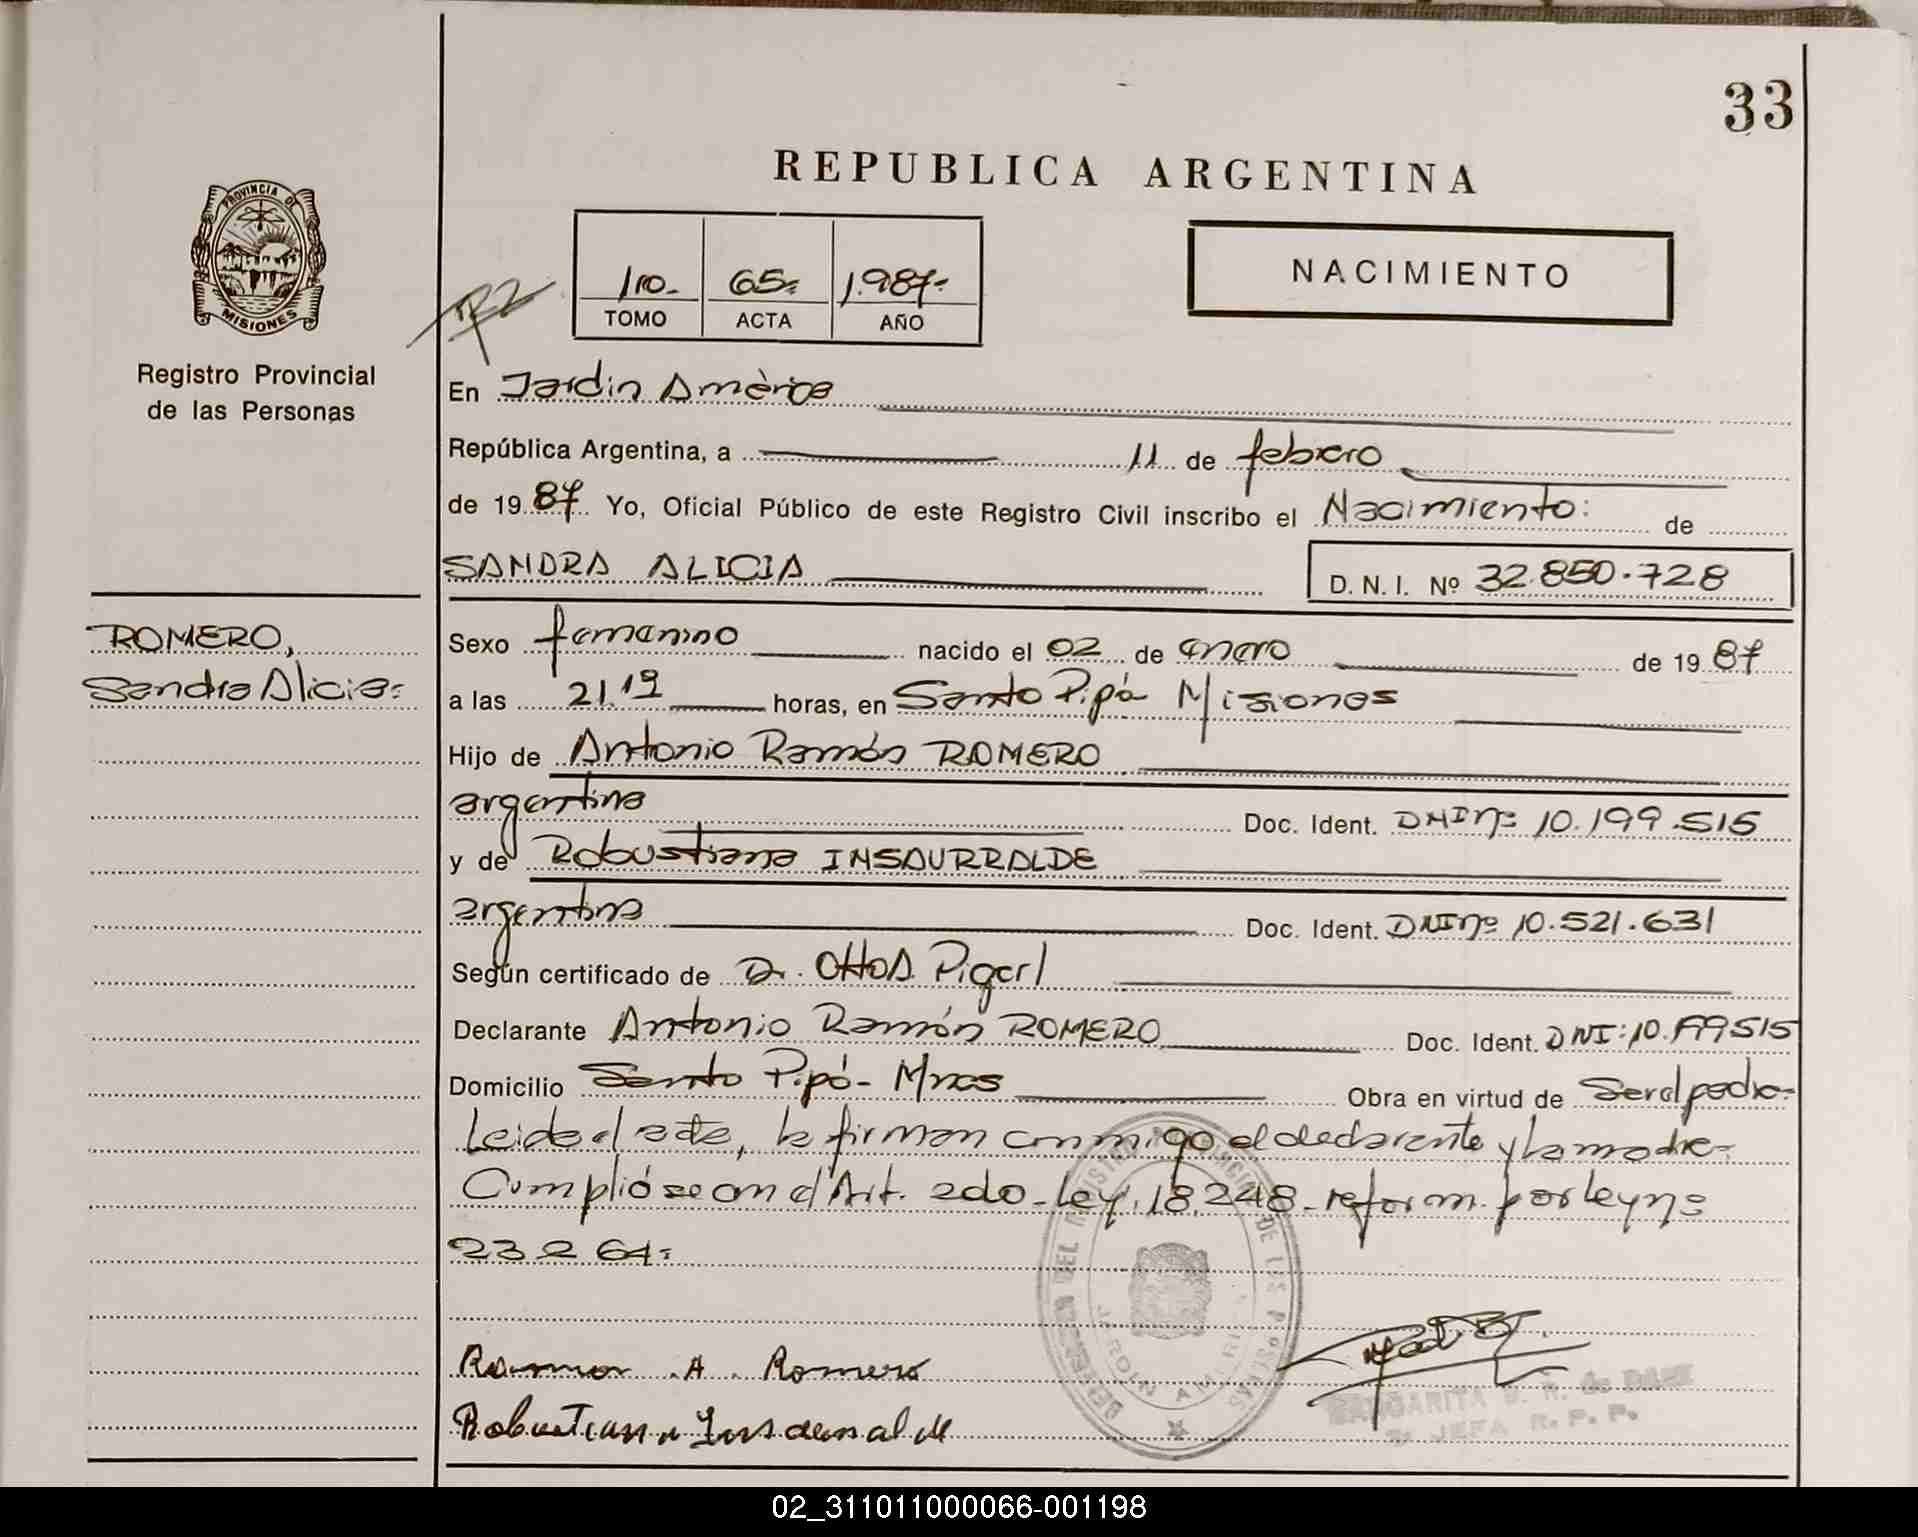 33
REPUBLICA ARGENTINA
PROVINCIA DE
MISIONES
Registro Provincial
de las Personas
1ro.- 65.- 1.987.-
TOMO ACTA AÑO
NACIMIENTO
En Jardin Amèrica
República Argentina, a 11 de febrero
de 1987 Yo, Oficial Público de este Registro Civil inscribo el Nacimiento: de
SANDRA ALICIA D. N. I. Nº 32.850.728
ROMERO,
Sandra Alicia.-
Sexo femenino nacido el 02 de enero de 1987
a las 21.19 horas, en Santo Pipó Misiones
Hijo de Antonio Ramón ROMERO
argentina Doc. Ident. DNI nº 10.199.515
y de Robustiana INSAURRALDE
argentina Doc. Ident. DNI nº 10.521.631
Según certificado de Dr. Pigerl
Declarante Antonio Ramón ROMERO Doc. Ident. DNI: 10.199515
Domicilio Santo Pipó- Mnes Obra en virtud de Ser el padre-
Leida el acta, la firman conmigo el declarante y la madre-
Cumplióse con el Art. 2do- Ley. 18.248- reform. por ley nº
23.264.-
Ramon .A. Romero
Robustiana
JARDIN AMERICA
MARGARITA de DARE
JEFA R. P. P.
02_311011000066-001198